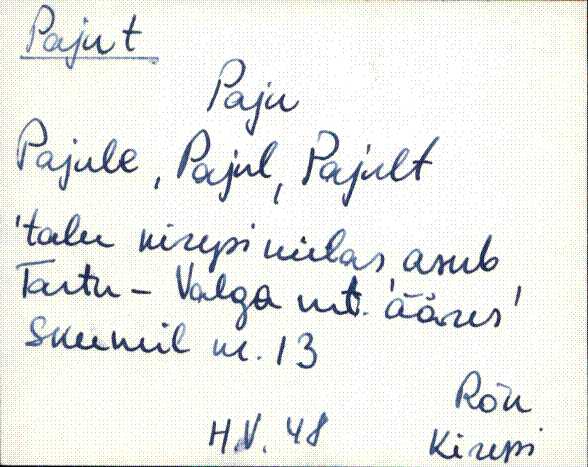 Paju t
Paju
Pajule, Pajul, Pajult
'talu Kirepi külas asub
Tartu - Valga mt. ääres'
Skeemil nr. 13
Rõn
H.V. 48
Kirepi